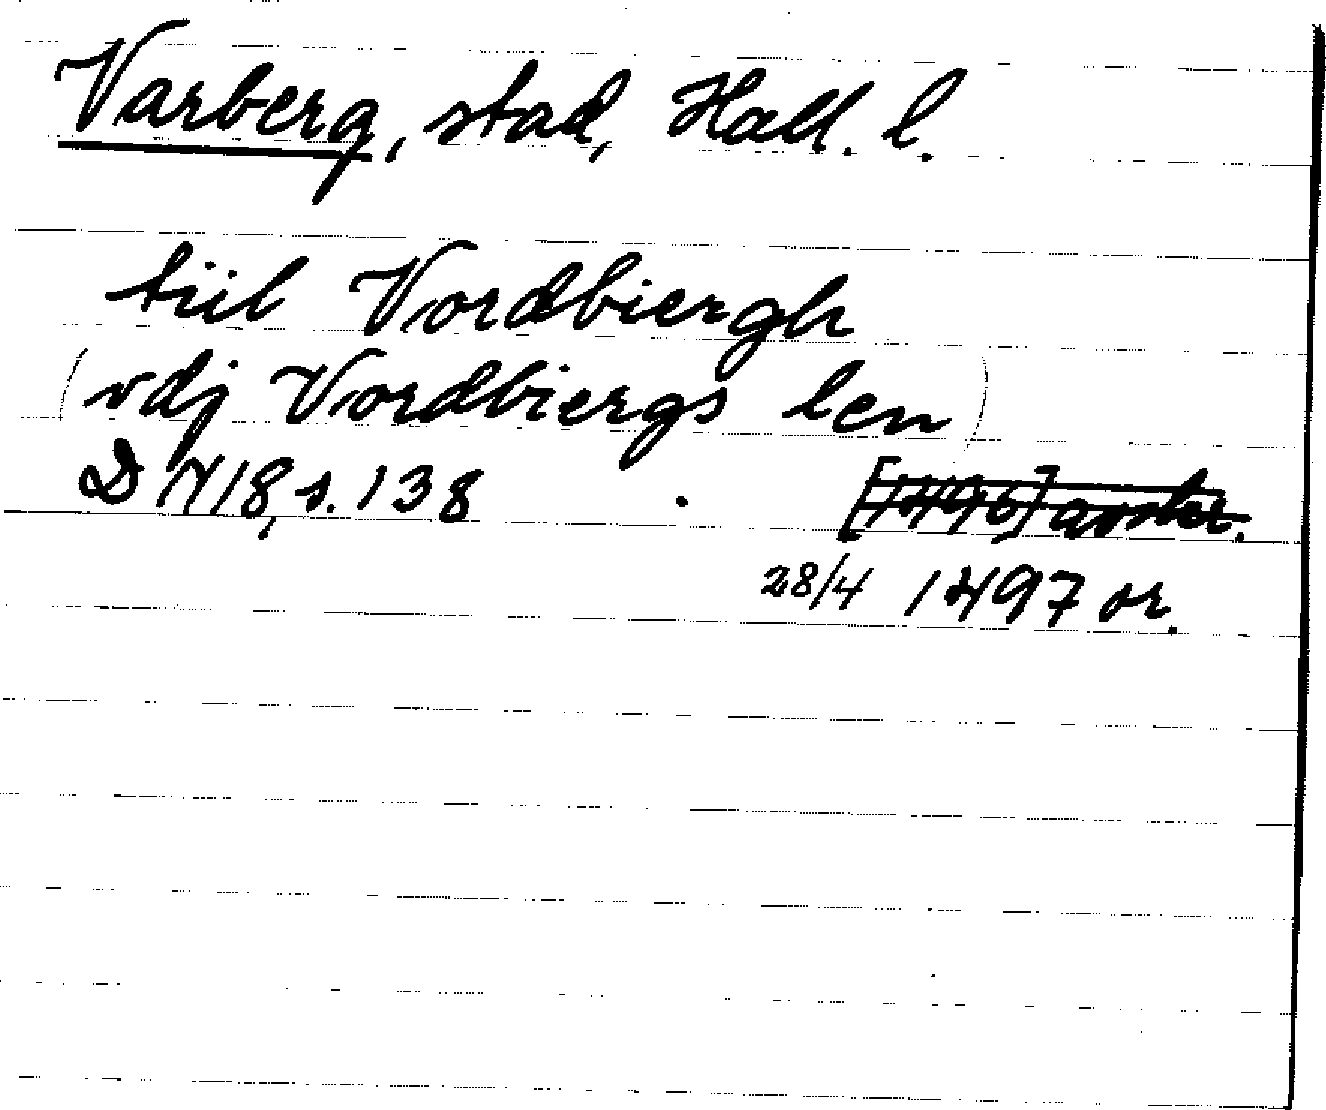 Varberg, stad, Hall. l.
tiil Vordbiergh
(vdj Vordbiergs len)
DN 18, s. 138 [1496] avskr.
28/4 1497 or.